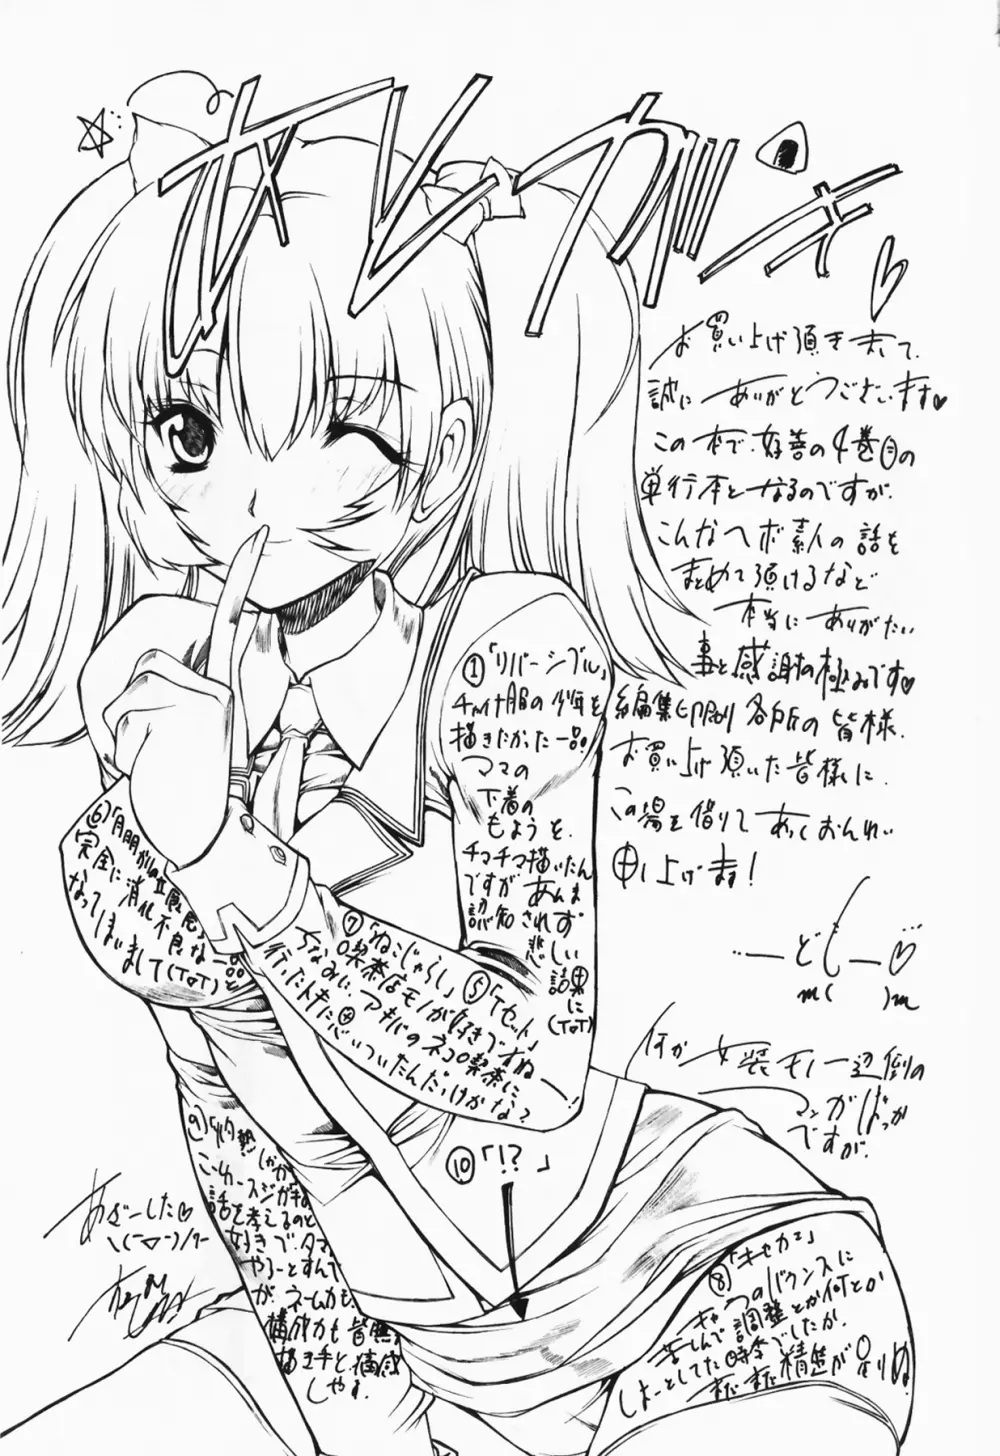 お買い上げ頂きまして、
誠にありがとうございます♥
この本で、好善の4巻目の
単行本となるのですが、
こんなヘボ素人の話を
まとめて頂けるなど
本当にありがたい
事と感謝の極みです♥
編集、印刷り各所の皆様、
お買い上げ頂いた皆様に、
この場を借りてあつくおんれい
申し上げます!
…―どじ―♡
m( )m
何か女装モノ一辺倒の
マンガばっか
ですが、
①「リバーシブル」
チャイナ服の少年を
描きたかった一品。
ママの
下着の
もようを、
チマチマ描いたん
ですが、あんま
認知されず
悲しい
結果に
(ToT)
⑥「月明かりの
完全に消化不良な一品と
なってしまいまして(ToT)
⑦「ねこじゃらし」
喫茶店モノが好きですねー!
ちなみに、アキバのネコ喫茶に
行ったトキに思いついたんだっけかな?
⑤「Tセット」
⑩「!?」
⑨「灼熱
話を考えるのと
好きで、タマに
やろーとすんです
が、ネーム力も、
構成力も皆無
描き手と痛感
しやす。
⑧「キセカエ」
ギャグのバランスに
苦しんで調整とか何とか
しよーとしてた時分でしたか、
まだまだ精進が足りぬ
あざーした♡
\(￣▽￣)/